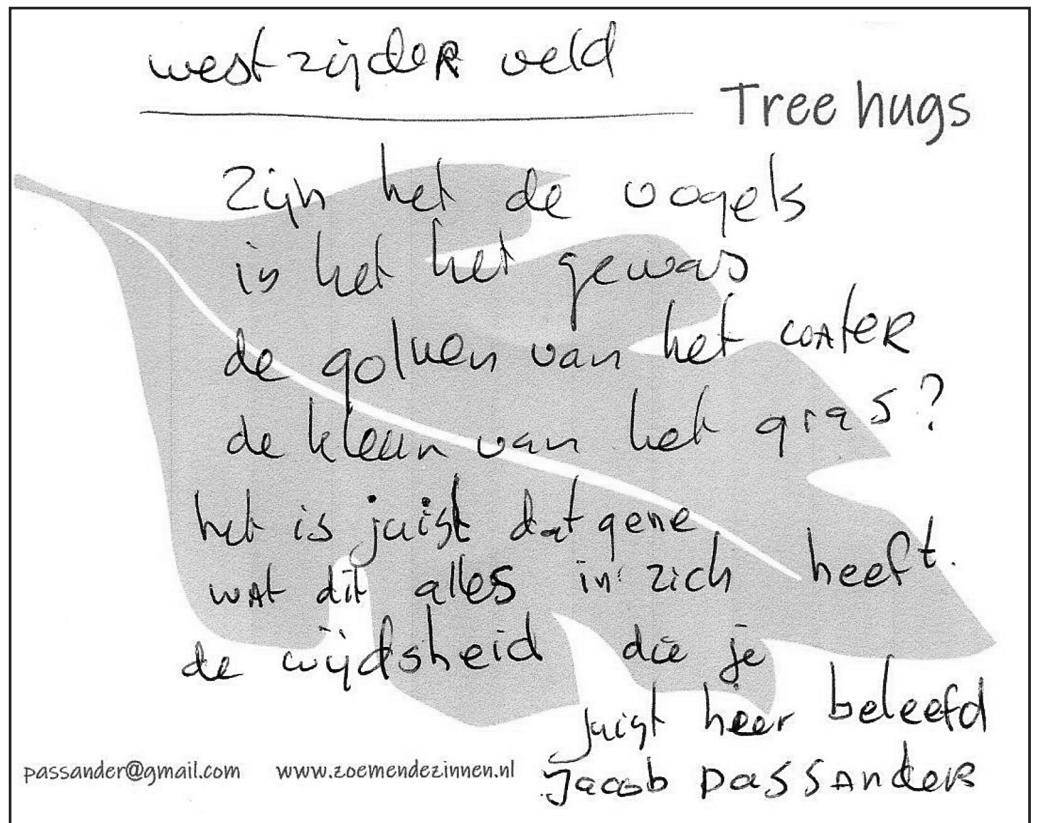 westzijdeR veld
Tree hugs
Zijn het de vogels
is het het gewas
de golven van het wAteR
de kleur van het gras?
het is juist datgene
wAt dit alles in zich heeft.
de wijdsheid die je
juist hier beleefd
Jacob PassAndeR
passander@gmail.com www.zoemendezinnen.nl